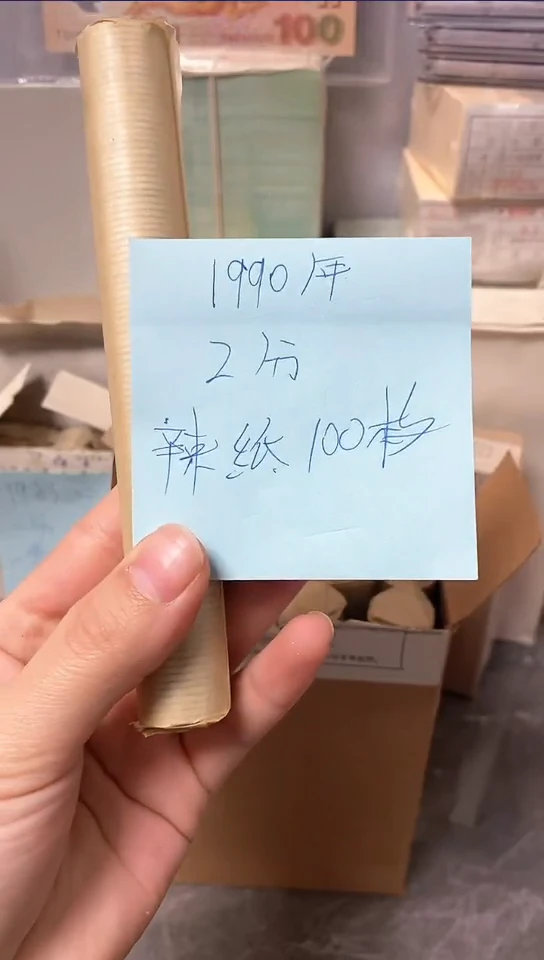 100
1990年
2分
辣纸100枚